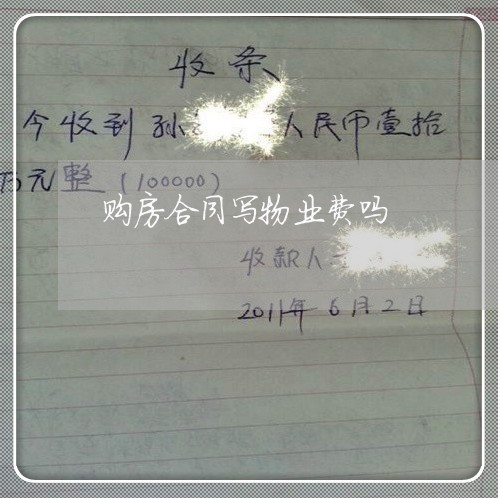 收条
今收到孙 人民币壹拾
万元整(100000)
购房合同写物业费吗
收款人
2011年6月2日